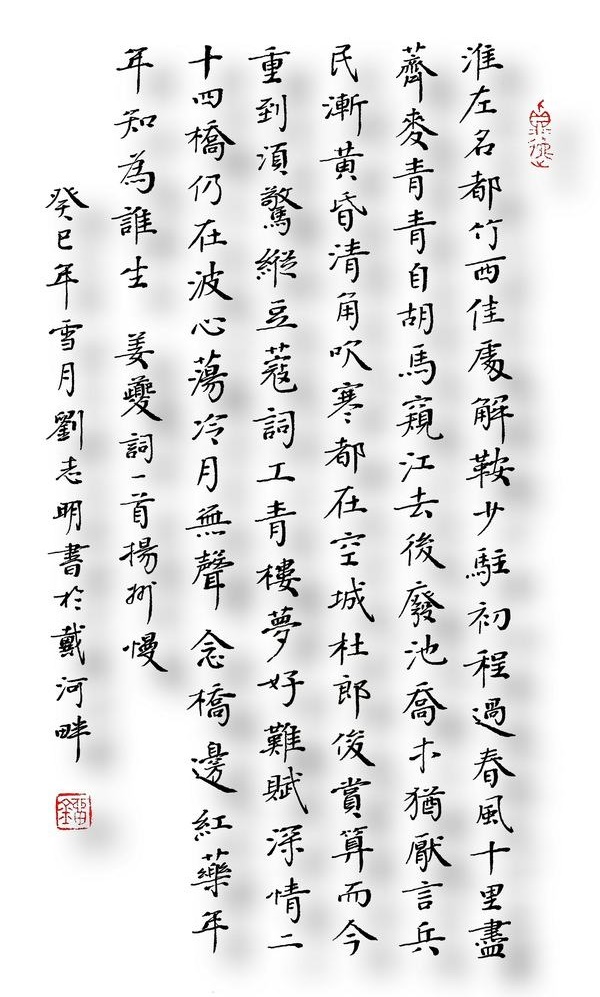 淮左名都竹西佳處解鞍少駐初程過春風十里盡
薺麥青青自胡馬窺江去後廢池喬木猶厭言兵
民漸黃昏清角吹寒都在空城杜郎俊賞算而今
重到須驚縱豆蔻詞工青樓夢好難賦深情二
十四橋仍在波心蕩冷月無聲 念橋邊紅藥年
年知為誰生 姜夔詞一首揚州慢
癸巳年雪月劉志明書於戴河畔